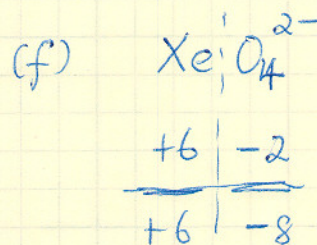 (f) XeO₄²⁻
+6 | -2
+6 | -8